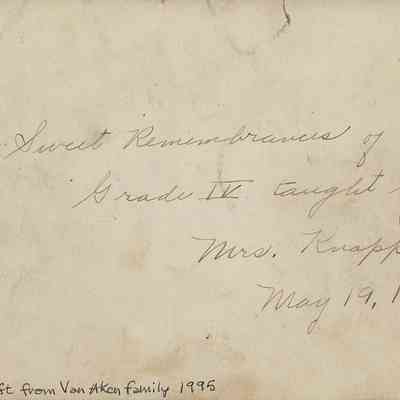 Sweet Remembrances of
Grade IV taught
Mrs. Knapp
May 19, 1
ft from Van Aken family 1995